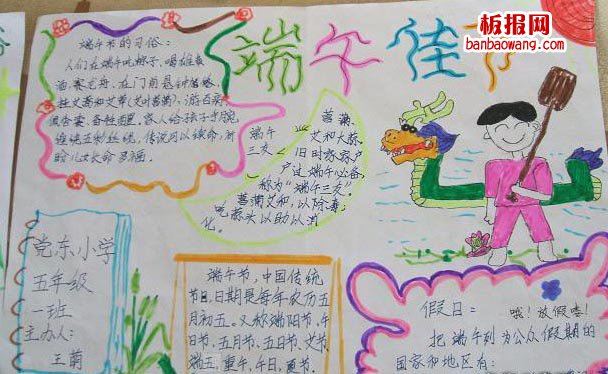 板报网
banbaowang.com
端午佳节
端午节的习俗：
人们在端午吃粽子，喝雄黄
酒，赛龙舟，在门前悬钟馗像，
挂艾蒿和艾草(艾叶菖蒲)，游百病，
佩香囊，备牲醴，家人给孩子手腕
拴五彩丝线，传说可以续命，祈
盼儿女长命百福。
端午
三友
菖蒲，
艾和大蒜，
旧时家家户
户过端午必备，
称为“端午三友”
菖蒲艾和，以除毒；
吃蒜头以助以消
化。
党东小学
五年级
一班
主办人：
王萌
端午节，中国传统
节日，日期是每年农历五
月初五。又称端阳节、午
日节、五月节、五日节、艾节、
端五、重午、午日、夏节。
假日：
哦！放假喽！
把端午列为公众假期的
国家和地区有：